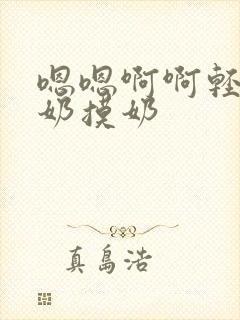 嗯嗯啊啊轻
奶摸奶
真島浩